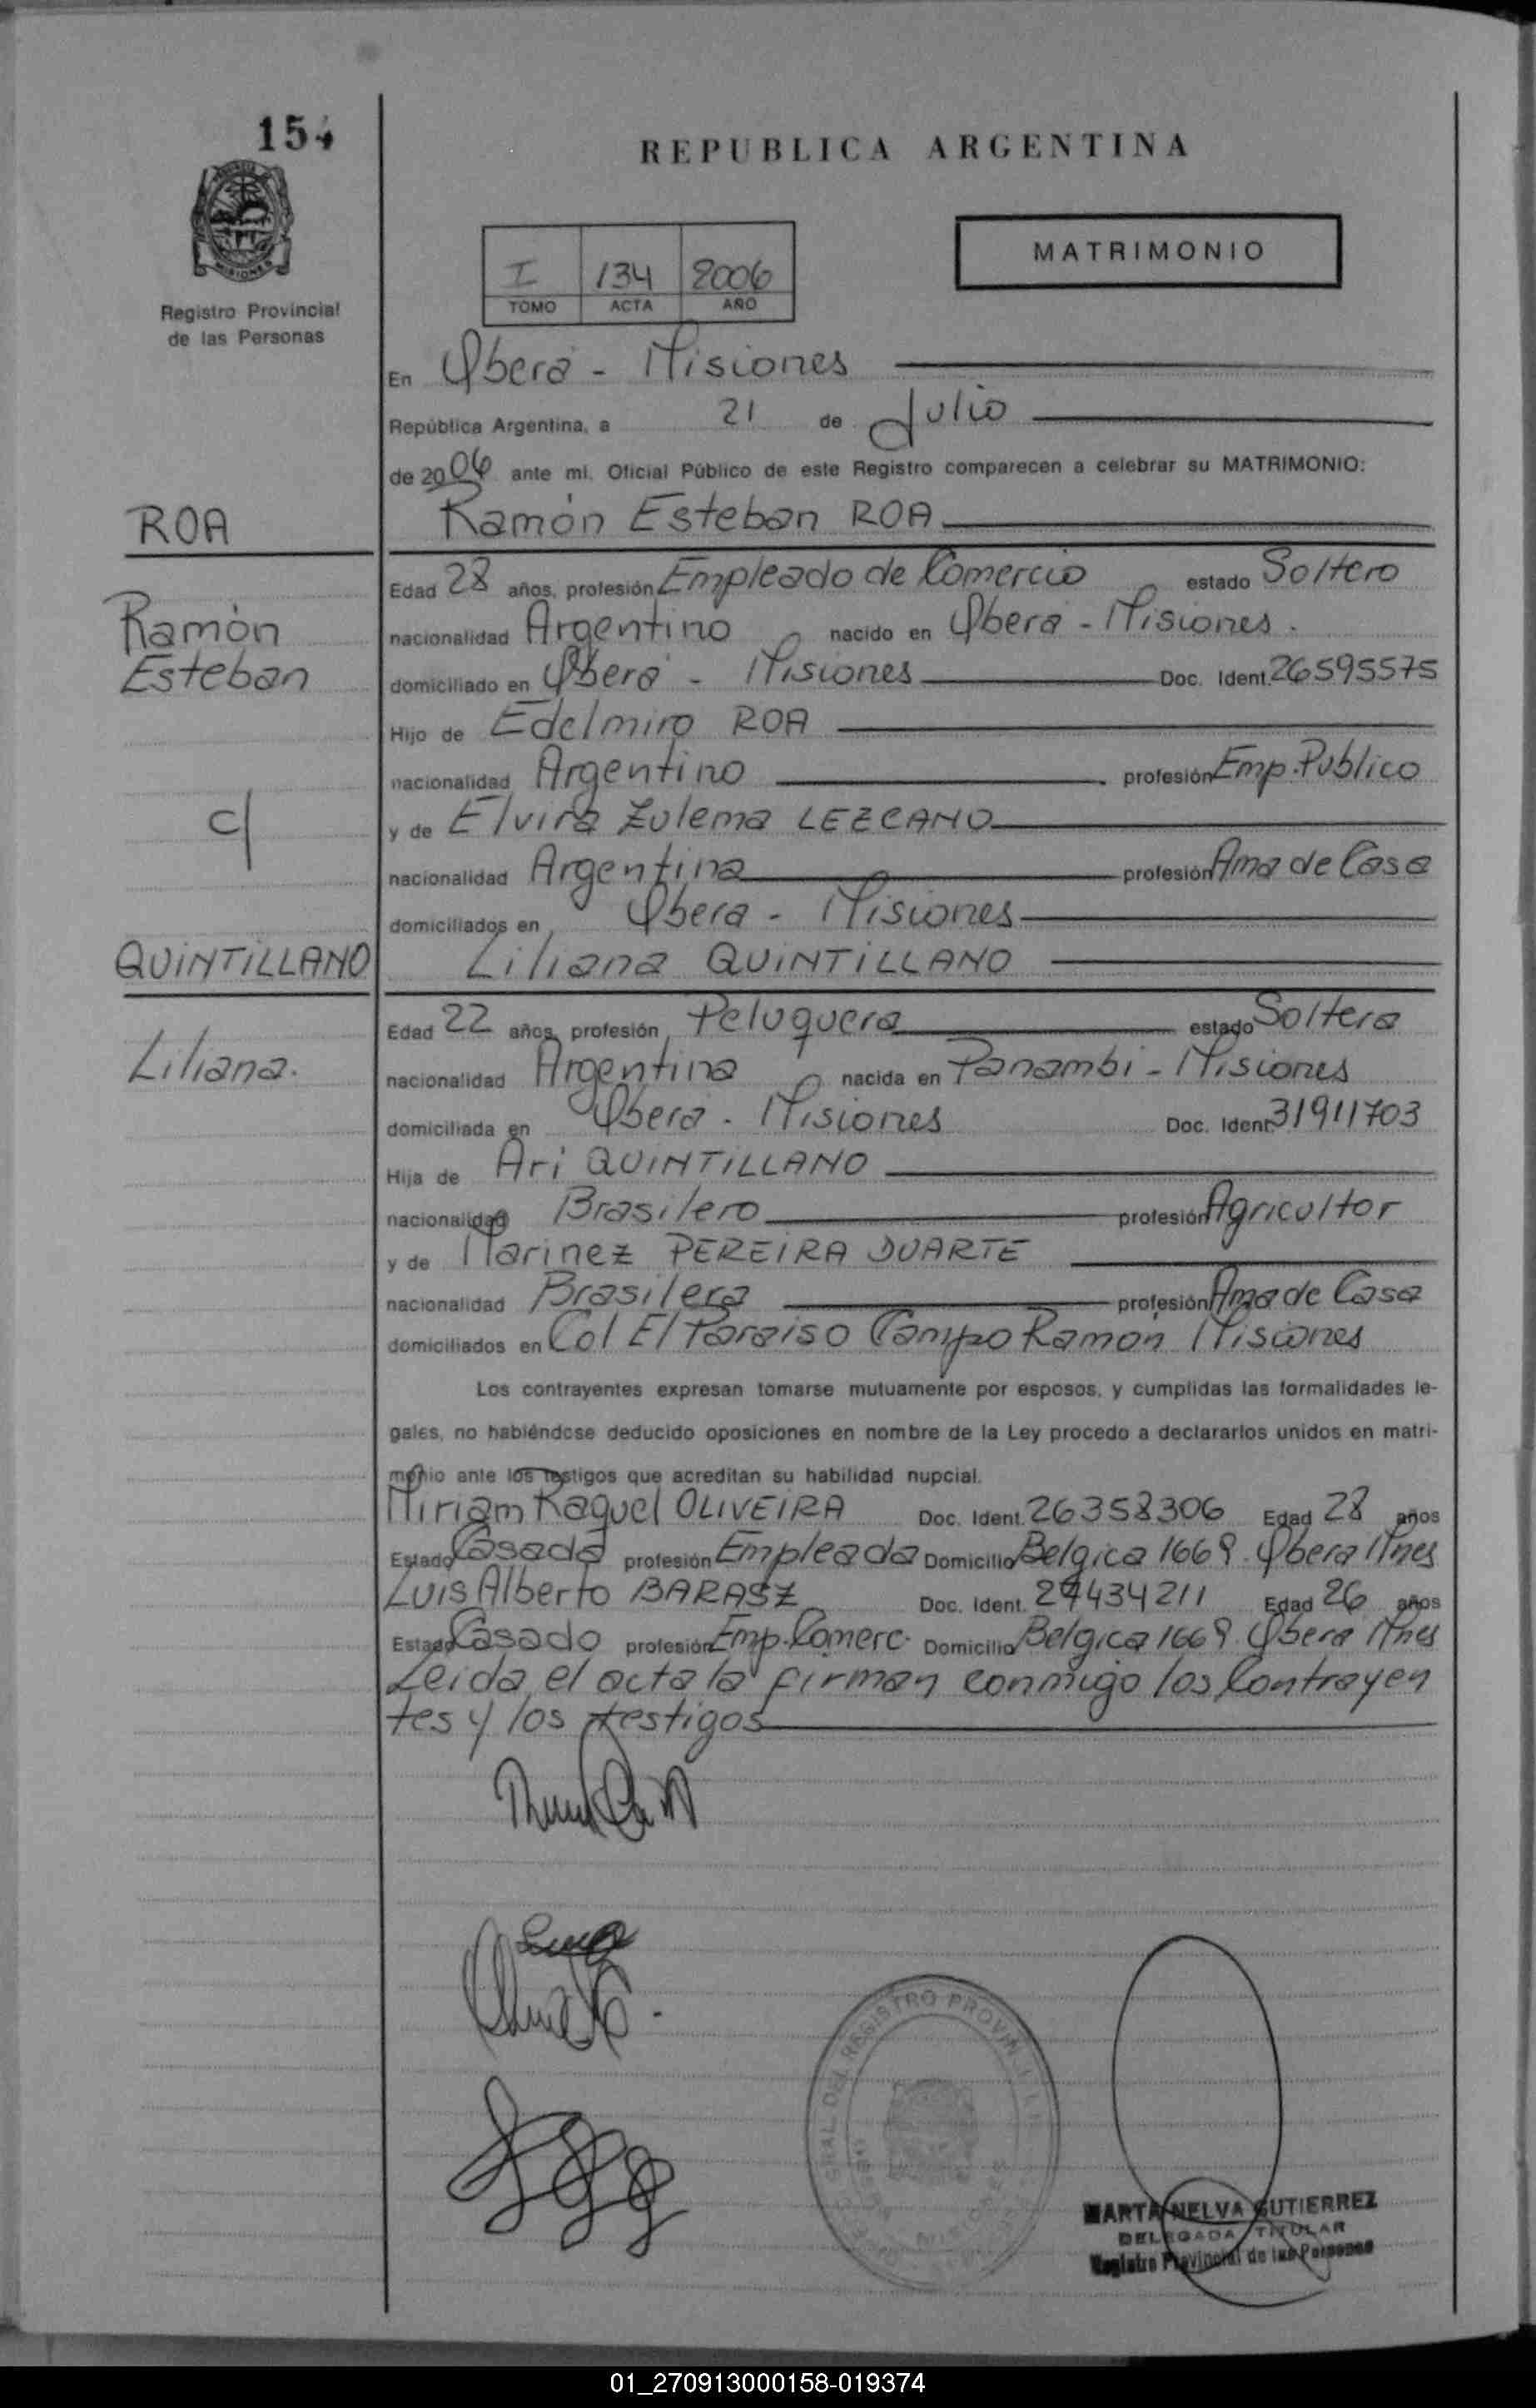 154
REPUBLICA ARGENTINA
MATRIMONIO
I 134 2006
TOMO ACTA AÑO
Registro Provincial
de las Personas
En Oberá - Misiones
República Argentina, a 21 de Julio
de 2006 ante mi. Oficial Público de este Registro comparecen a celebrar su MATRIMONIO:
ROA
Ramón Esteban ROA
Edad 28 años, profesión Empleado de Comercio estado Soltero
Ramón
nacionalidad Argentino nacido en Oberá - Misiones.
Esteban
domiciliado en Oberá - Misiones Doc. Ident. 26595575
Hijo de Edelmiro ROA
nacionalidad Argentino profesión Emp. Publico
c/
y de Elvira Zulema LEZCANO
nacionalidad Argentina profesión Ama de Casa
domiciliados en Oberá - Misiones
QUINTILLANO
Liliana QUINTILLANO
Edad 22 años, profesión Peluquera estado Soltera
Liliana.
nacionalidad Argentina nacida en Panambi - Misiones
domiciliada en Oberá - Misiones Doc. Ident. 31911703
Hija de Ari QUINTILLANO
nacionalidad Brasilero profesión Agricultor
y de Marinez PEREIRA DUARTE
nacionalidad Brasilera profesión Ama de Casa
domiciliados en Col El Paraiso Campo Ramón Misiones
Los contrayentes expresan tomarse mutuamente por esposos, y cumplidas las formalidades le-
gales, no habiéndose deducido oposiciones en nombre de la Ley procedo a declararlos unidos en matri-
monio ante los testigos que acreditan su habilidad nupcial.
Miriam Raquel OLIVEIRA Doc. Ident. 26358306 Edad 28 años
Estado Casada profesión Empleada Domicilio Belgica 1669. Obera Mnes
Luis Alberto BARASZ Doc. Ident. 27434211 Edad 26 años
Estado Casado profesión Emp. Comerc. Domicilio Belgica 1669. Obera Mnes
Leida el acta la firman conmigo los Contrayen
tes y los testigos
REGISTRO PROVINCIAL
MARTA NELVA GUTIERREZ
DELEGADA TITULAR
Registro Provincial de las Personas
01_270913000158-019374